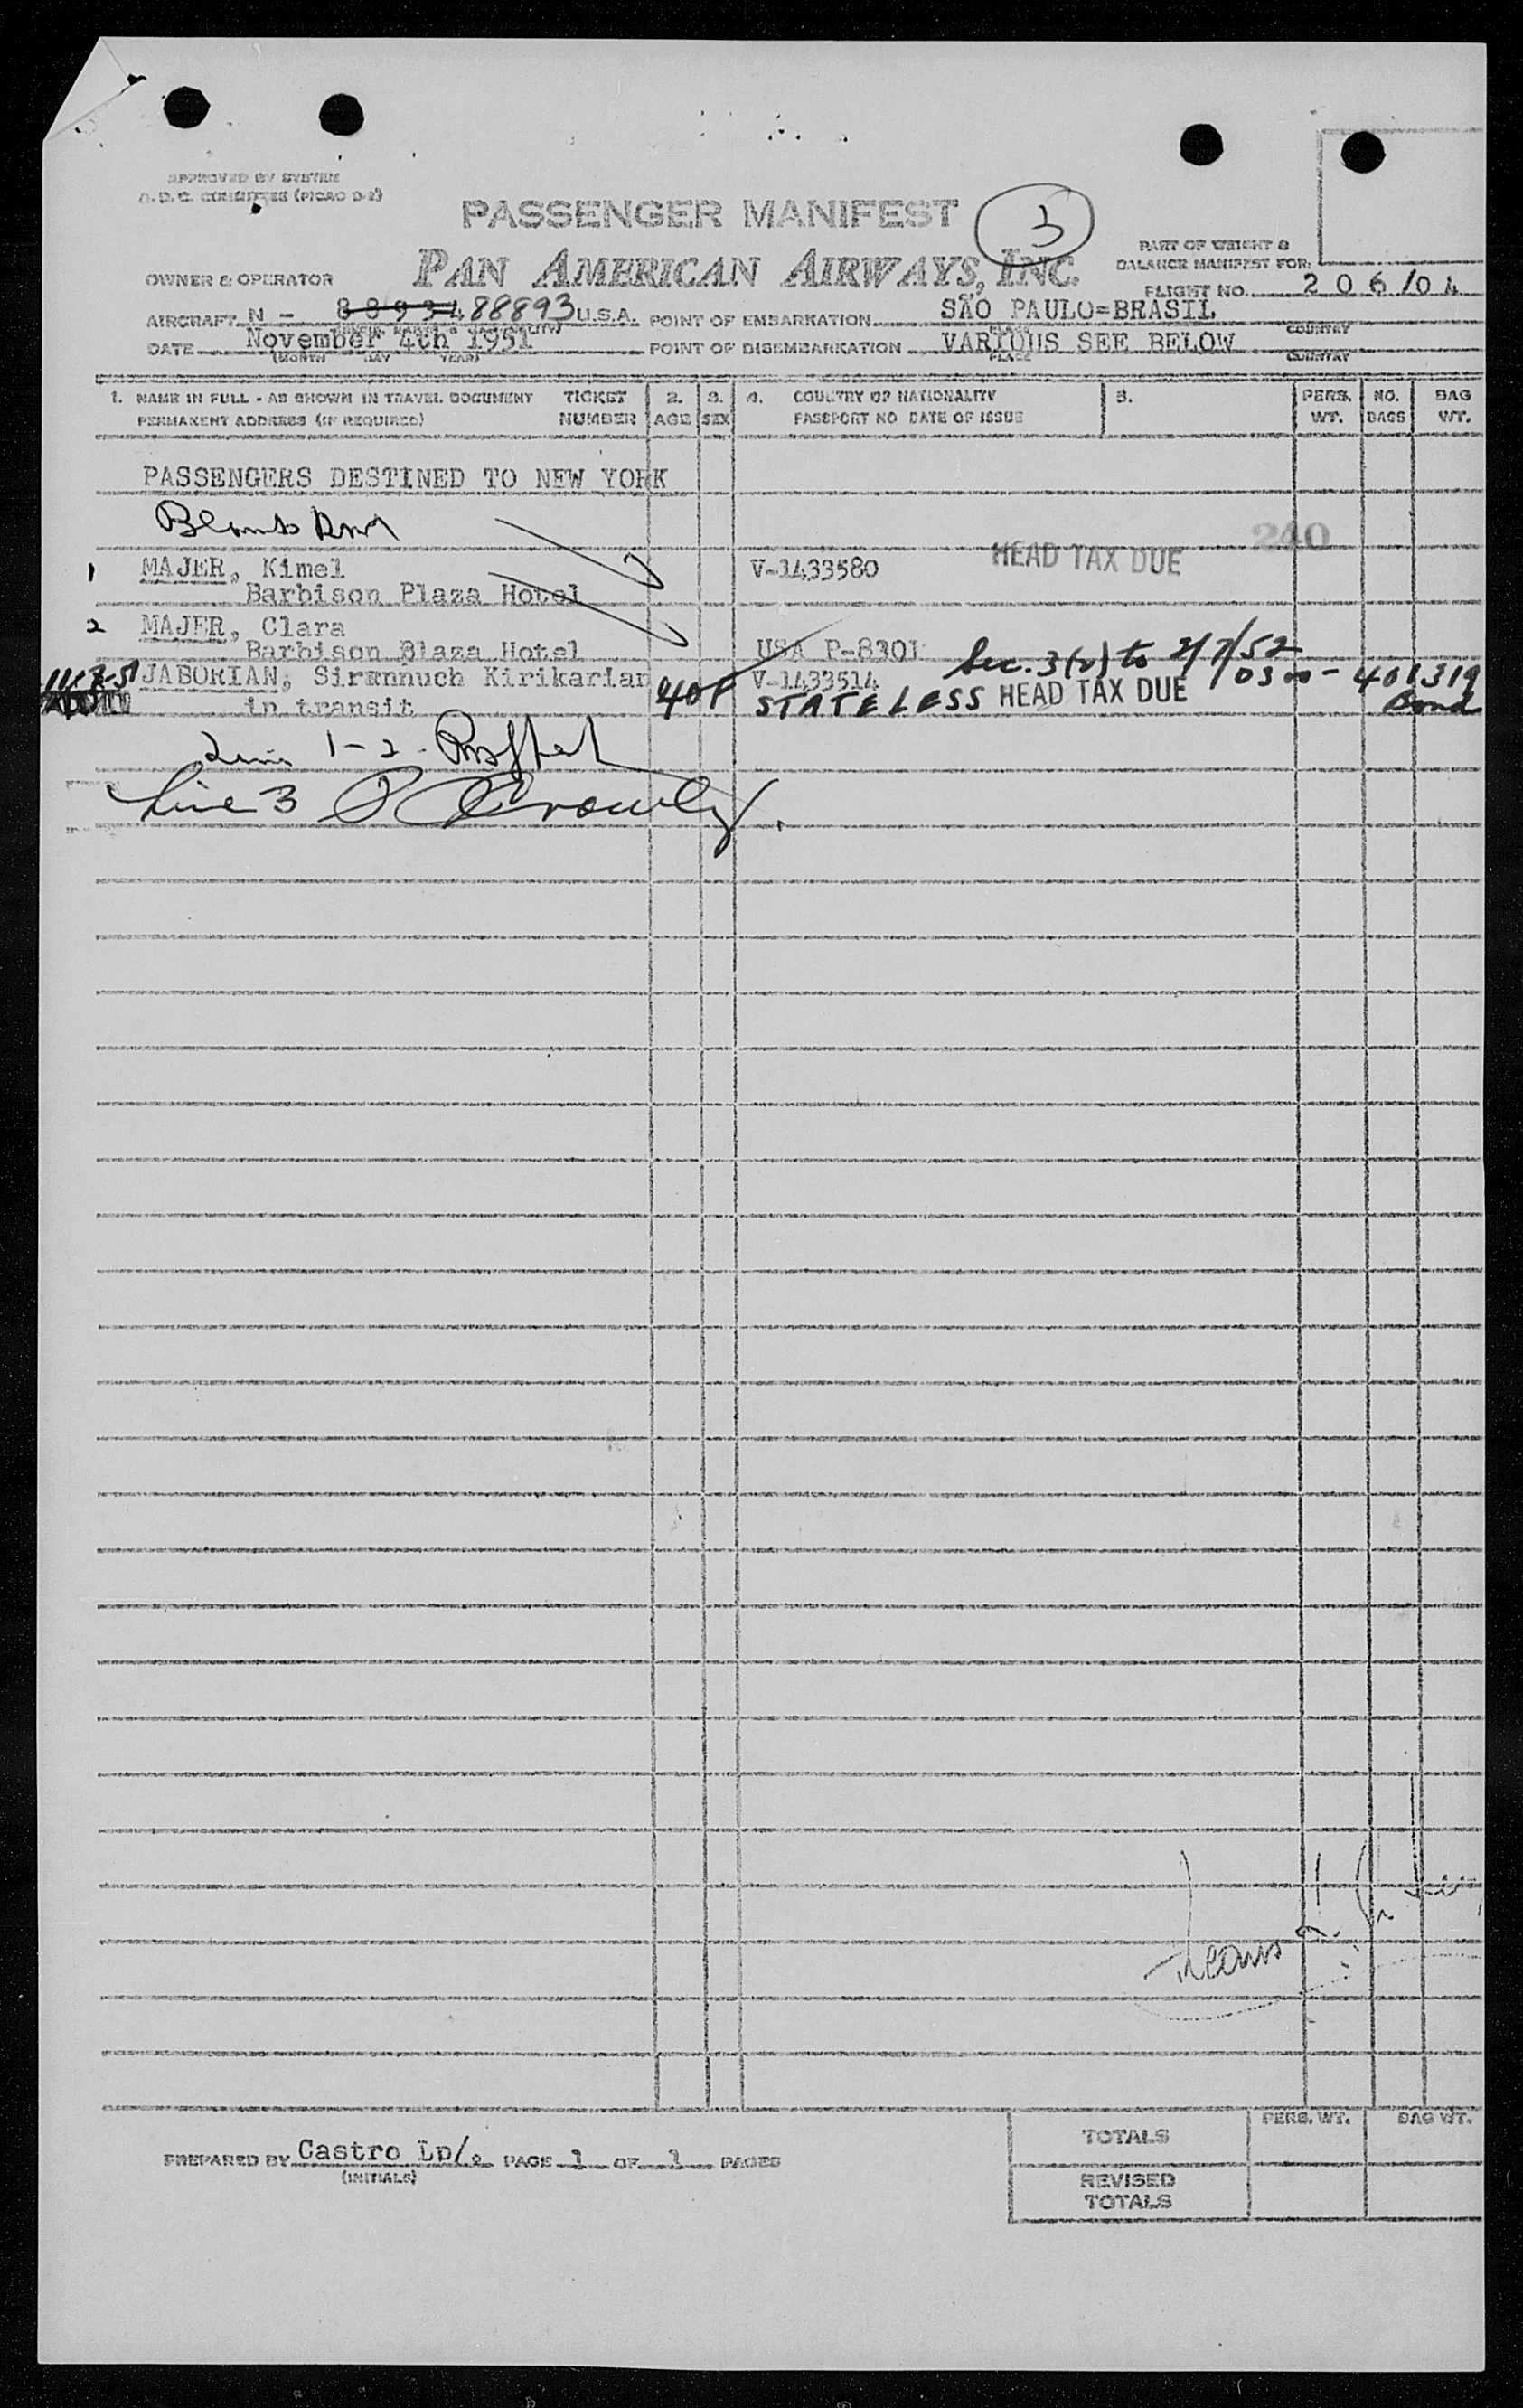 APPROVED BY SYSTEM
O. D. C. COMMITTEE (PICAO D-2)
PASSENGER MANIFEST
3
PAN AMERICAN AIRWAYS, INC.
PART OF WEIGHT &
BALANCE MANIFEST FOR:
OWNER & OPERATOR
FLIGHT NO. 206/04
AIRCRAFT N - 88934 88893 U.S.A. POINT OF EMBARKATION SÃO PAULO=BRASIL
PLACE COUNTRY
DATE November 4th 1951 POINT OF DISEMBARKATION VARIOUS SEE BELOW
(MONTH DAY YEAR) PLACE COUNTRY
1. NAME IN FULL - AS SHOWN IN TRAVEL DOCUMENT TICKET 2. 3. 4. COUNTRY OF NATIONALITY 5. PERS. NO. BAG
PERMANENT ADDRESS (IF REQUIRED) NUMBER AGE SEX PASSPORT NO DATE OF ISSUE WT. BAGS WT.
PASSENGERS DESTINED TO NEW YORK
240
1 MAJER, Kimel V-1433580 HEAD TAX DUE
Barbison Plaza Hotel
2 MAJER, Clara
Barbison Plaza Hotel USA P-8301 Sec. 3(2) to 2/7/52
11-7-51 JABORIAN, Sirannuch Kirikarian 40 F V-1433514 0300-401319
in transit STATELESS HEAD TAX DUE Bond
1-2-
Line 3
PREPARED BY Castro Lp/. PAGE 1 OF 1 PAGES
(INITIALS)
PERS. WT. BAG WT.
TOTALS
REVISED
TOTALS